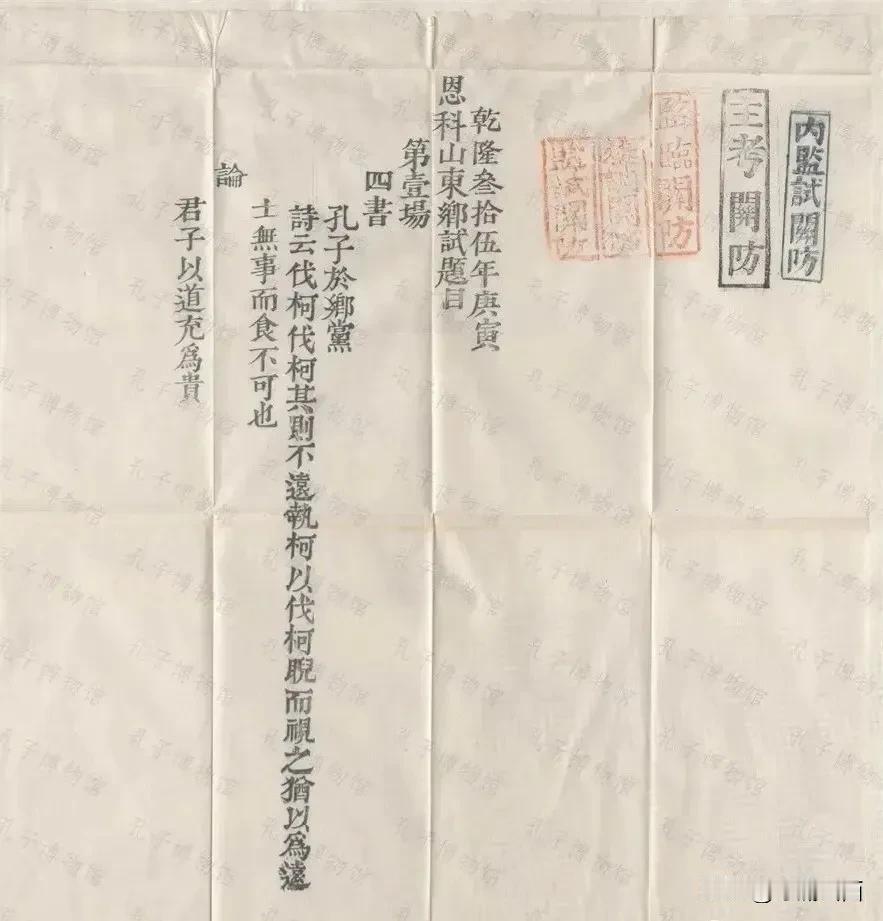 内監試關防
主考關防
監臨關防
乾隆叁拾伍年庚寅
恩科山東鄉試題目
第壹場
四書
孔子於鄉黨
詩云伐柯伐柯其則不遠執柯以伐柯睨而視之猶以爲遠
士無事而食不可也
論
君子以道充爲貴
孔子博物馆